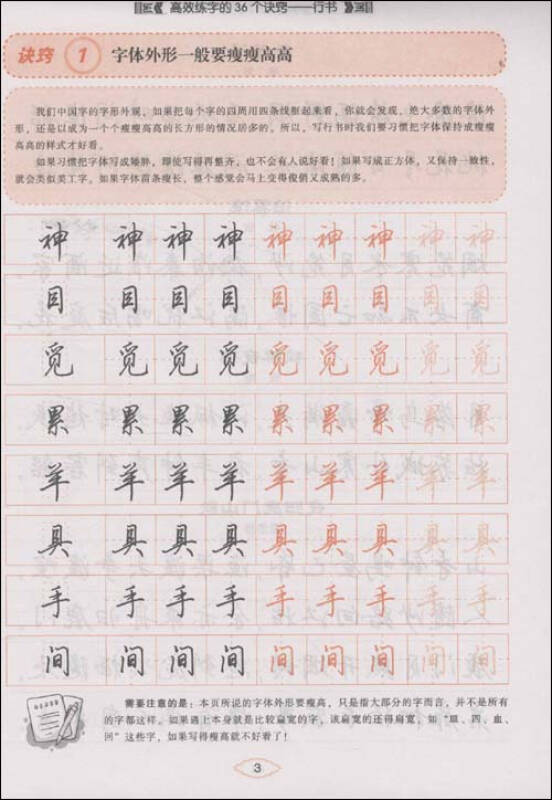 高效练字的36个诀窍——行书
诀窍 1 字体外形一般要瘦瘦高高
我们中国字的字形外观，如果把每个字的四周用四条线框起来看，你就会发现，绝大多数的字体外
形，还是以成为一个个瘦瘦高高的长方形的情况居多的。所以，写行书时我们要习惯把字体保持成瘦瘦
高高的样式才好看。
如果习惯把字体写成矮胖，即使写得再整齐，也不会有人说好看！如果写成正方体，又保持一致性，
就会类似美工字。如果字体苗条瘦长，整个感觉会马上变得俊俏又成熟的多。
神 神 神 神 神 神 神 神 神
目 目 目 目 目 目 目 目 目
觅 觅 觅 觅 觅 觅 觅 觅 觅
累 累 累 累 累 累 累 累 累
羊 羊 羊 羊 羊 羊 羊 羊 羊
具 具 具 具 具 具 具 具 具
手 手 手 手 手 手 手 手 手
间 间 间 间 间 间 间 间 间
需要注意的是：本页所说的字体外形要瘦高，只是指大部分的字而言，并不是所有
的字都这样。如果遇上本身就是比较扁宽的字，该扁宽的还得扁宽，如“四、血、
回”这些字，如果写得瘦高就不好看了！
3